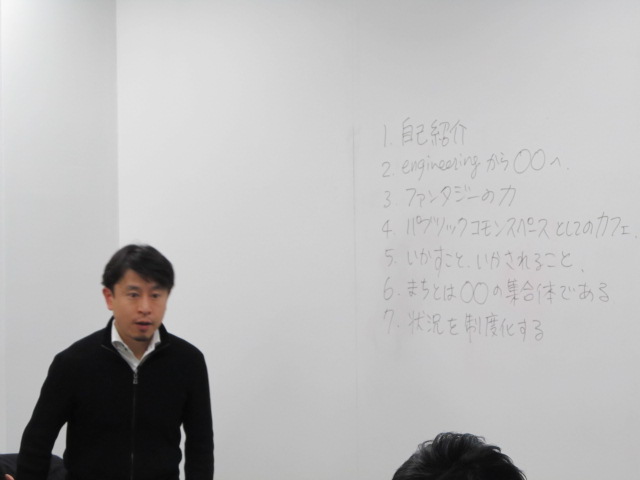 1. 自己紹介
2. engineeringから〇〇へ.
3 ファンタジーの力
4. パブリックコモンスペースとしてのカフェ.
5. いかすこと、いかされること.
6. まちとは〇〇の集合体である
7. 状況を制度化する